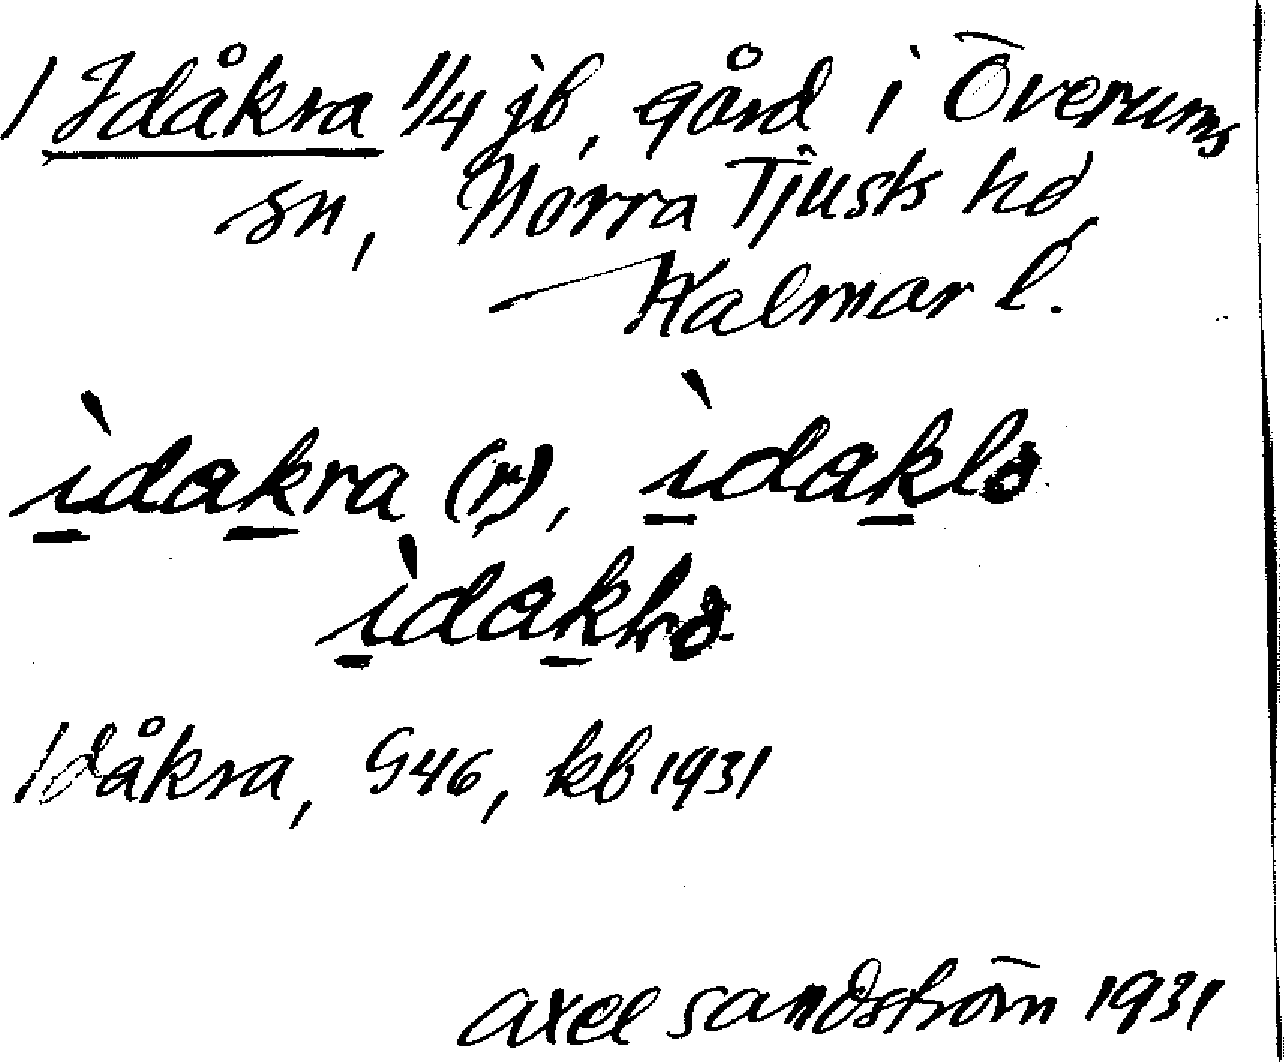 1 Idåkra 1/4 jb, gård i Överums
sn, Norra Tjusts hd,
Kalmar l.
ìdakra (r), ìdaklə
ìdakhrə
Idåkra, G46, kb 1931
Axel Sandström 1931